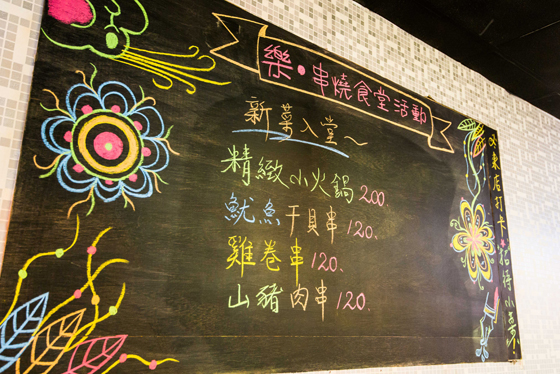 樂•串燒食堂活動
新菜入堂~
精緻小火鍋200.
魷魚干貝串120.
雞卷串120.
山豬肉串120.
來店打卡招待小菜